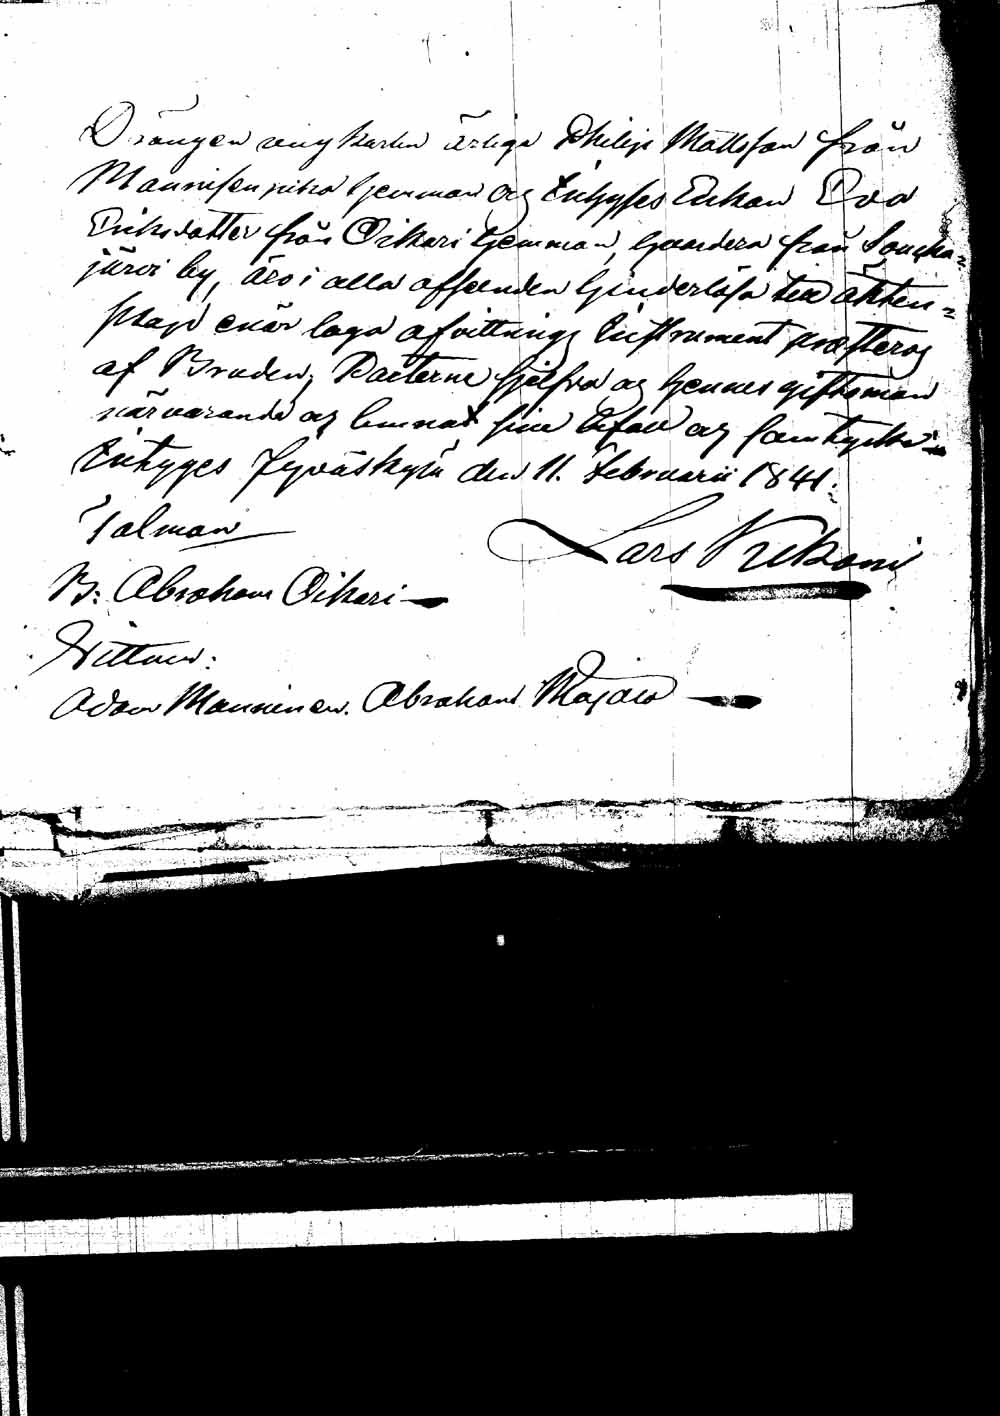 Drängen ungkarlen ärliga Philip Mattsson från
hemman og Enkan Eva
Eriksdotter från Oikari hemman, från Soucka=
järvi by, äro i alla afseenden hinderlösa till äkten=
skap enär laga afvittrings Instrument
af Bruden, Parterne sjelfva og hennes giftoman
närvarande og lemnat sine og samtycke
Intyges Jyväskylä den 11. Februarii 1841.
Talman
Lars
B: Abraham Oikari
Vittnen:
Adam Manninen. Abraham Majala